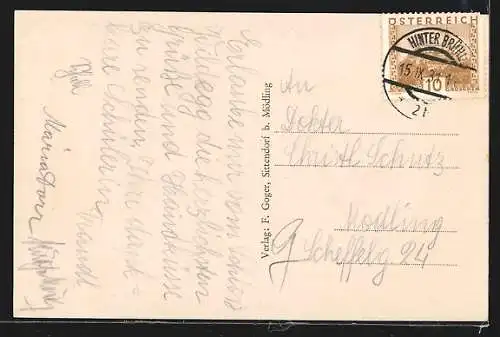 Erlaube mir vom Schloß
Wildegg die herzlichsten
Grüße und Handküsse
zu senden, Ihre dank=
bare Schülerin
Traudl
Maria Dorr
Verlag: F. Goger, Sittendorf b. Mödling
ÖSTERREICH
10
GROSCHEN
HINTERBRÜHL
15.IX.
An
Doktor
Christl Schütz
Mödling
Scheffelg 24